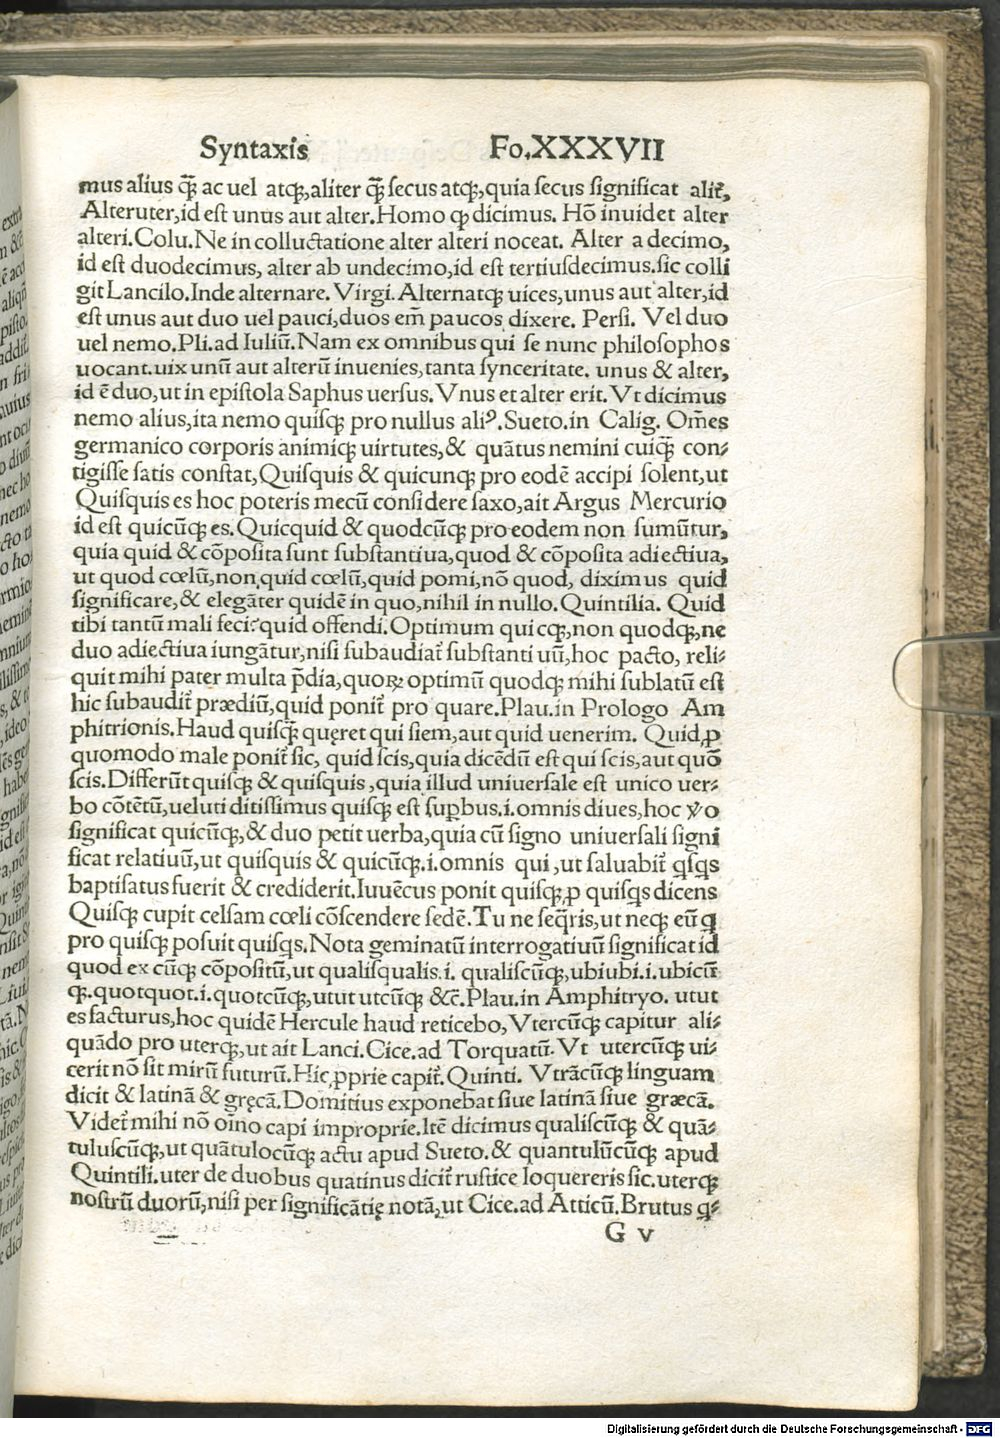 Syntaxis Fo.XXXVII
mus alius q̃ꝫ ac uel atqꝫ,aliter q̃ꝫ secus atqꝫ,quia secus significat alit̃,
Alteruter,id est unus aut alter.Homo ꝙ dicimus. Hõ inuidet alter
alteri.Colu.Ne in colluctatione alter alteri noceat. Alter a decimo,
id est duodecimus, alter ab undecimo,id est tertiusdecimus.sic colli
git Lancilo.Inde alternare. Virgi. Alternatqꝫ uices,unus aut alter,id
est unus aut duo uel pauci,duos em̃ paucos dixere. Persi. Vel duo
uel nemo.Pli.ad Iuliũ.Nam ex omnibus qui se nunc philosophos
uocant.uix unũ aut alterũ inuenies,tanta synceritate. unus & alter,
id ẽ duo,ut in epistola Saphus uersus. Vnus et alter erit. Vt dicimus
nemo alius,ita nemo quisqꝫ pro nullus aliꝰ. Sueto.in Calig. Om̃es
germanico corporis animiqꝫ uirtutes,& quãtus nemini cuiq̃ꝫ con⸗
tigisse satis constat,Quisquis & quicunqꝫ pro eodẽ accipi solent,ut
Quisquis es hoc poteris mecũ considere saxo,ait Argus Mercurio
id est quicũqꝫ es.Quicquid & quodcũqꝫ pro eodem non sumũtur,
quia quid & cõposita sunt substantiua,quod & cõposita adiectiua,
ut quod cœlũ,non quid cœlũ,quid pomi,nõ quod, diximus quid
significare,& elegãter quidẽ in quo,nihil in nullo.Quintilia. Quid
tibi tantũ mali feci?quid offendi.Optimum qui cqꝫ,non quodqꝫ,ne
duo adiectiua iungãtur,nisi subaudiat̃ substanti uũ,hoc pacto, reli⸗
quit mihi pater multa p̃dia,quoꝝ optimũ quodqꝫ mihi sublatũ est
hic subaudit̃ prædiũ,quid ponit̃ pro quare.Plau.in Prologo Am
phitrionis.Haud quisq̃ꝫ quęret qui siem,aut quid uenerim. Quid,ꝓ
quomodo male ponit̃ sic, quid scis,quia dicẽdũ est qui scis,aut quõ
scis.Differũt quisqꝫ & quisquis,quia illud uniuersale est unico uer⸗
bo cõtẽtũ,ueluti ditissimus quisqꝫ est suꝑbus.i.omnis diues,hoc ỹo
significat quicũqꝫ,& duo petit uerba,quia cũ signo uniuersali signi
ficat relatiuũ,ut quisquis & quicũqꝫ.i.omnis qui,ut saluabit̃ qsqs
baptisatus fuerit & crediderit.Iuuẽcus ponit quisqꝫ,ꝓ quisqs dicens
Quisqꝫ cupit celsam cœli cõscendere sedẽ.Tu ne seq̃ris,ut neqꝫ eũ q
pro quisqꝫ posuit quisqs.Nota geminatũ interrogatiuũ significat id
quod ex cũqꝫ cõpositũ,ut qualisqualis.i. qualiscũqꝫ,ubiubi.i.ubicũ
qꝫ.quotquot.i.quotcũqꝫ,utut utcũqꝫ &c̃.Plau.in Amphitryo. utut
es facturus,hoc quidẽ Hercule haud reticebo,Vtercũqꝫ capitur ali⸗
quãdo pro uterqꝫ,ut ait Lanci.Cice.ad Torquatũ. Vt utercũqꝫ ui⸗
cerit nõ sit mirũ futurũ.Hic,ꝓprie capit̃. Quinti. Vtrãcũqꝫ linguam
dicit & latinã & gręcã.Domitius exponebat siue latinã siue græcã.
Videt̃ mihi nõ oĩno capi improprie.Itẽ dicimus qualiscũqꝫ & quã⸗
tuluscũqꝫ,ut quãtulocũqꝫ actu apud Sueto.& quantulũcũqꝫ apud
Quintili.uter de duobus quatinus dicit̃ rustice loquereris sic.uterqꝫ
nostrũ duorũ,nisi per significãtię notã,ut Cice.ad Atticũ.Brutus q⸗
G v
Digitalisierung gefördert durch die Deutsche Forschungsgemeinschaft - DFG